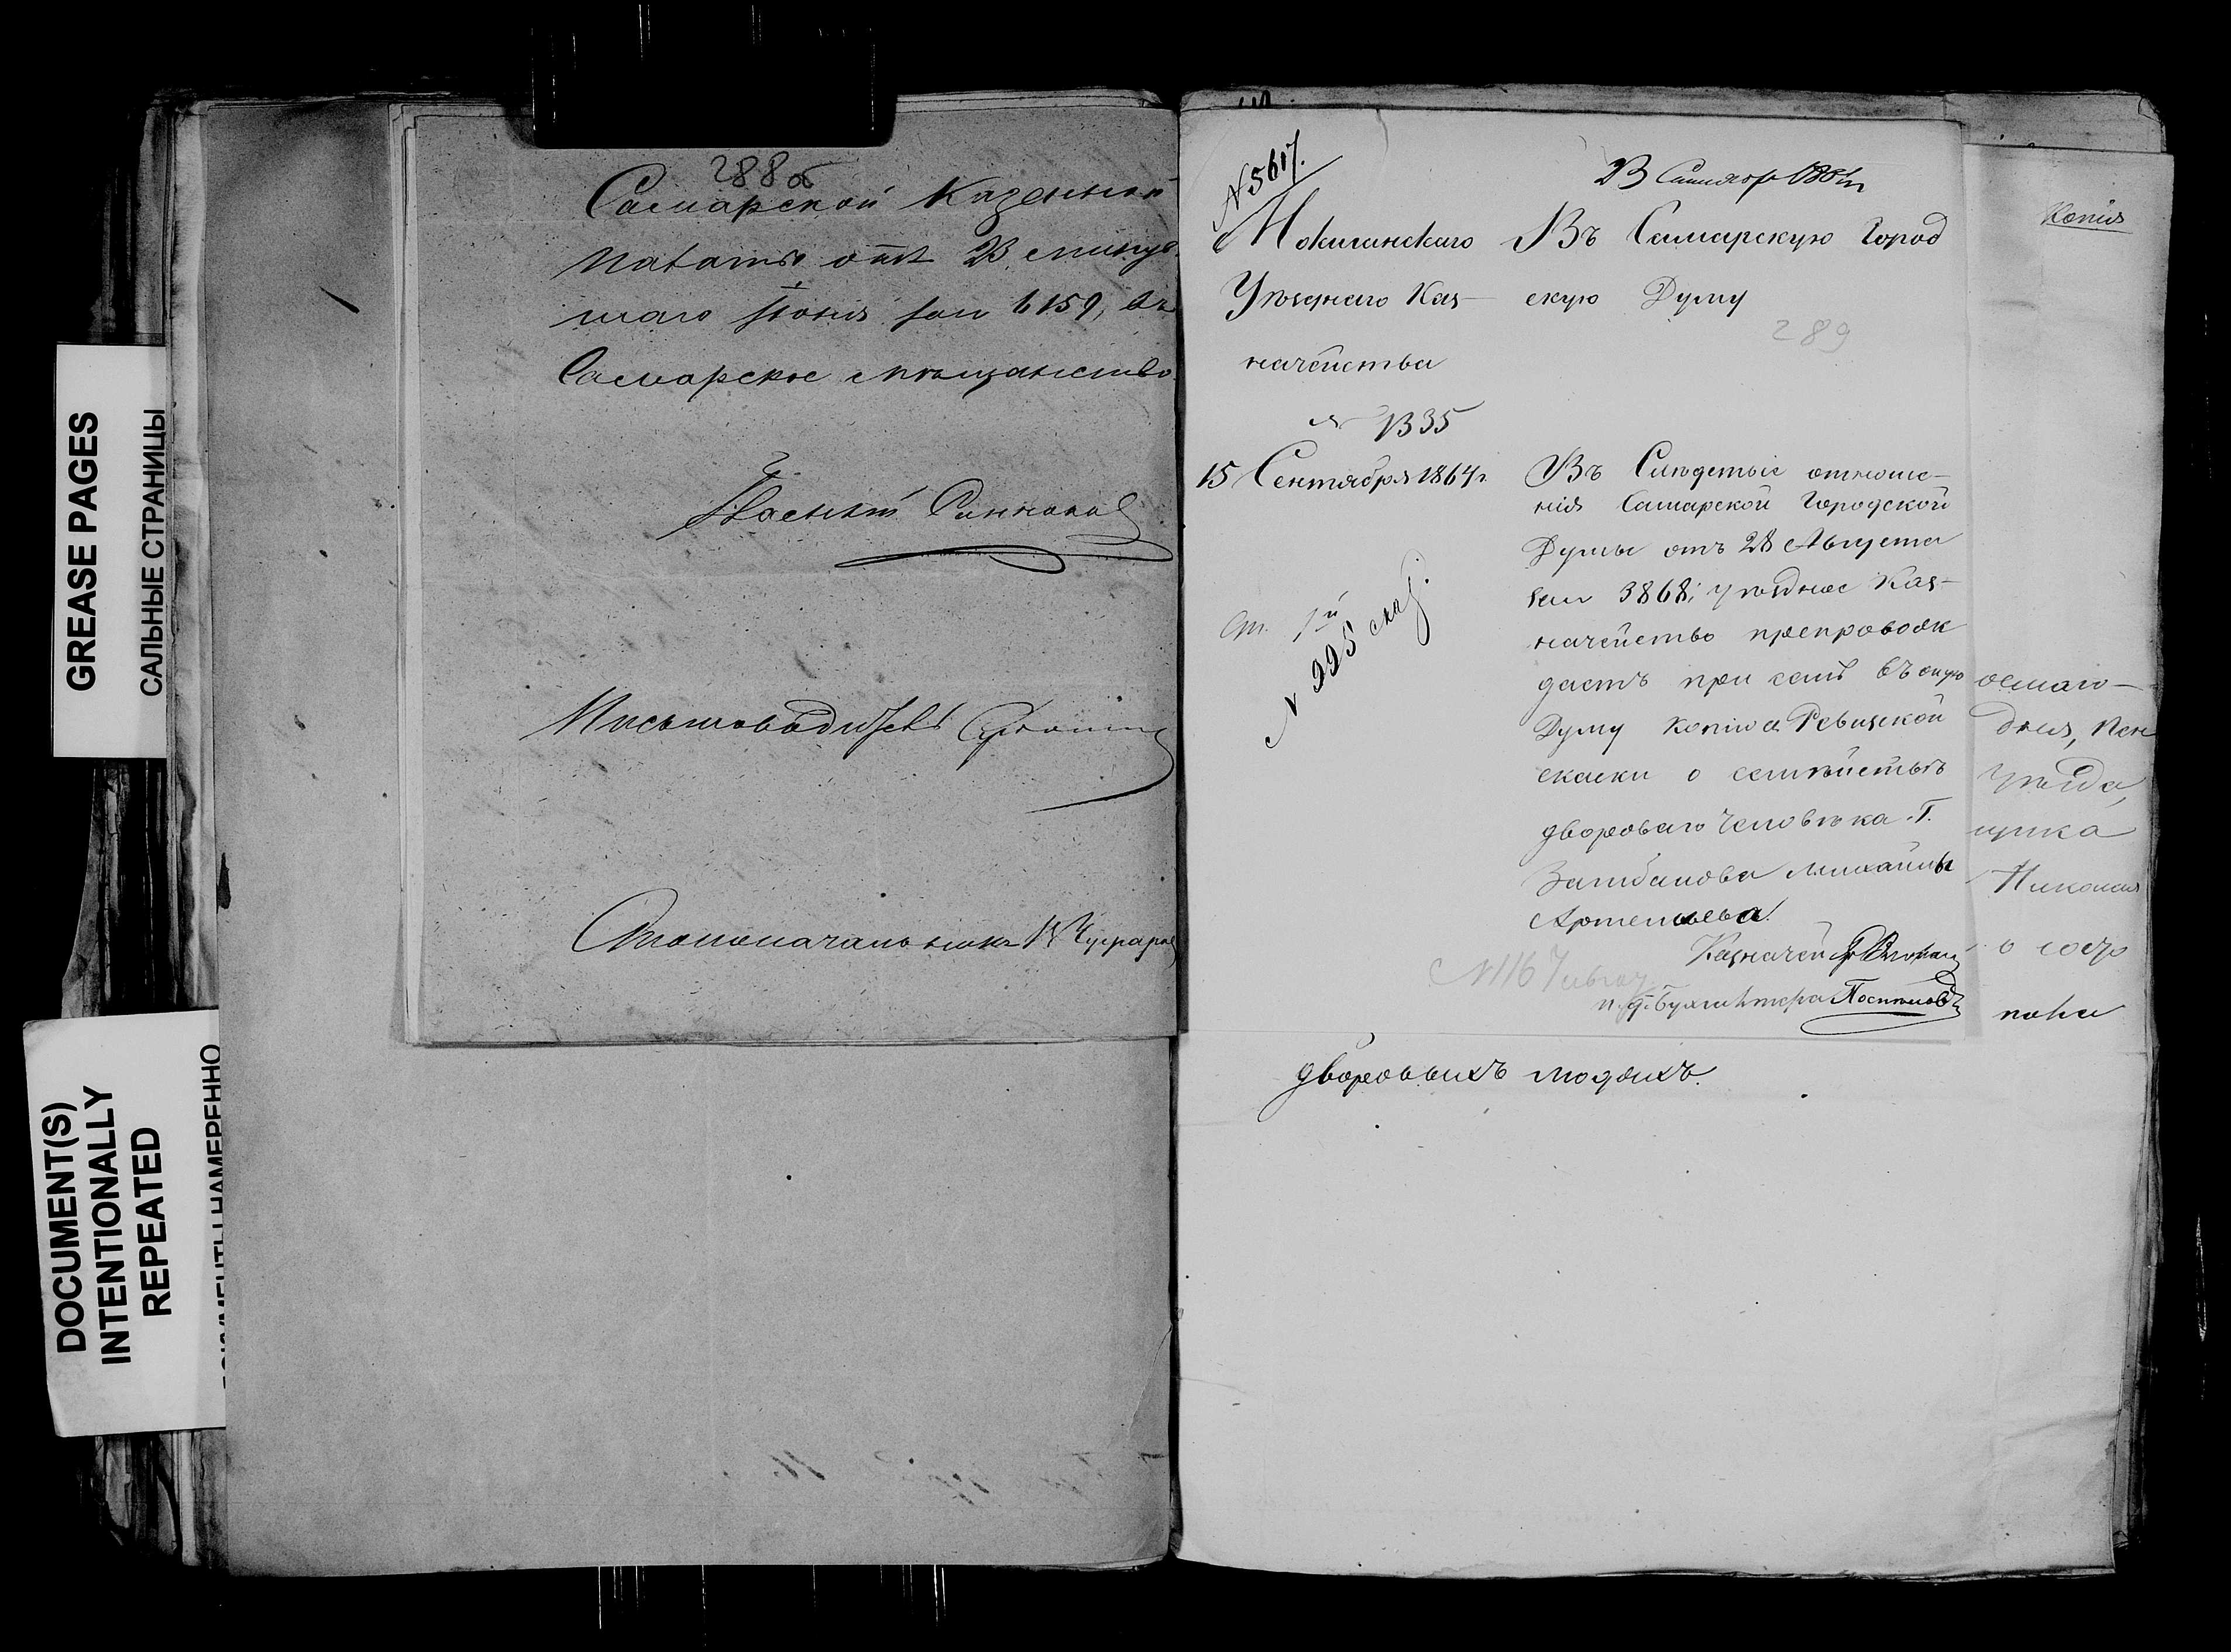 GREASE PAGES
САЛЬНЫЕ СТРАНИЦЫ
DOCUMENT(S)
INTENTIONALLY
REPEATED
288об
Самарской Казенной
Палаты отъ 23 минув
шаго Іюня за № 6159, въ
Самарское мѣщанство.
Гласный
Письмоводитель
Столоначальникъ
№ 5617.
23 Сентября 1864 г.
Мокшанскаго
Уѣзднаго Каз-
начейства
№ 1335
15 Сентября 1864 г.
Ст. 1й
№ 995
Въ Самарскую Город
скую Думу
289
Въ Слѣдствіе отноше-
нія Самарской Городской
Думы отъ 28 Августа
за № 3868; уѣздное Каз-
начейство препровож
даетъ при семъ въ оную
Думу копію Ревизской
скаски о семѣйствѣ
двороваго человѣка Г.
Михайлы
Артемьева.
Казначей
и. д. Бухгалтера
дворовыхъ людяхъ.
Копія
Уѣзда,
щика
Николая
о состо